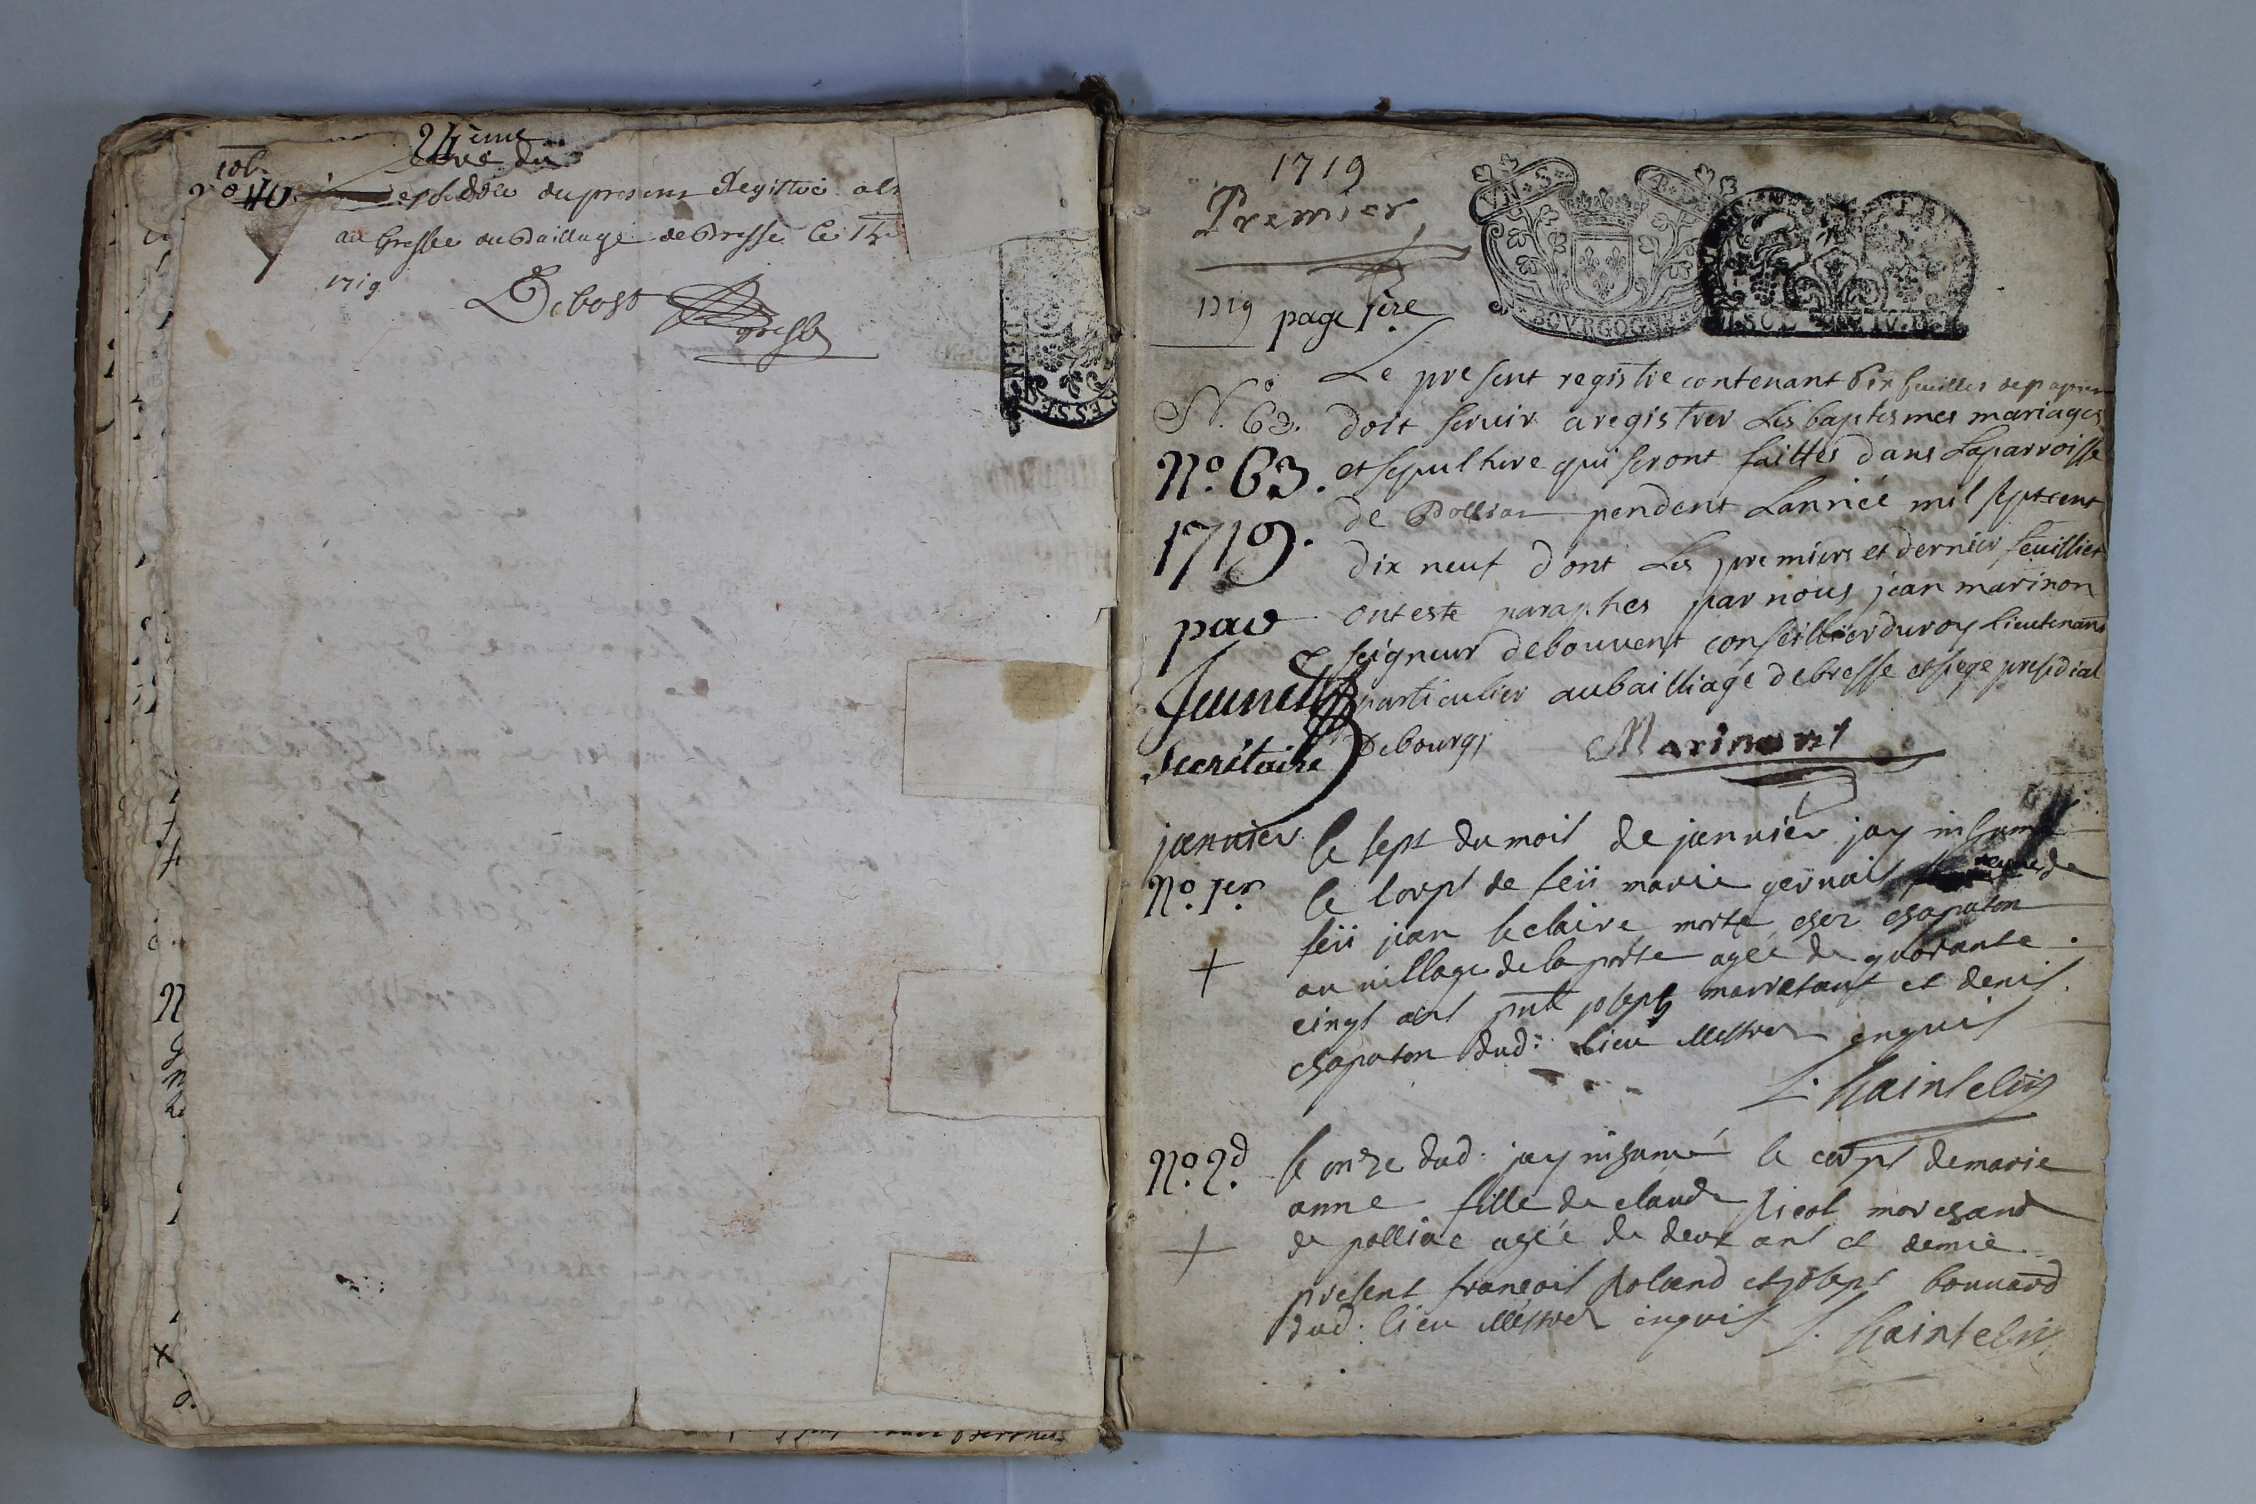 24ème
10b.
n° 40.
du present Registre a
au Greffe du Bailliage de Bresse le
1719
Debost
1719
Premier
VN · S
BOVRGOGNE
1719 page 1ère
Le present registre contenant dix feuilles de papier
N.° 63. doit servir a registrer Les baptesmes mariages
N.° 63. et sepulture qui seront faittes dans La parroisse
1719. de Polliat pendent Lannée mil sept cent
dix neuf dont Les premiers et dernier feuilliet
ont este paraphes par nous jean marinon
seigneur de bouvent conseillier du roy Lieutenant
Secrétaire particulier au bailliage de bresse et siege presidial
de bourg
Marinon
januier le sept du mois de januier jay inhumé
N.° 1er le corps de feü marie geruais veuue de
feü jean leclaire morte chez chapaton
au uillage de la porte agée de quarante
cinqt ans pnt joseph et denis
chapaton dud: lieu illettres enquis
N.° 2d le onze dud: jay inhumé le corps de marie
anne fille de claude marchand
de polliac agée de deux ans et demie
présent françois Roland et joseph bouuard
dud: lieu illettres enquis